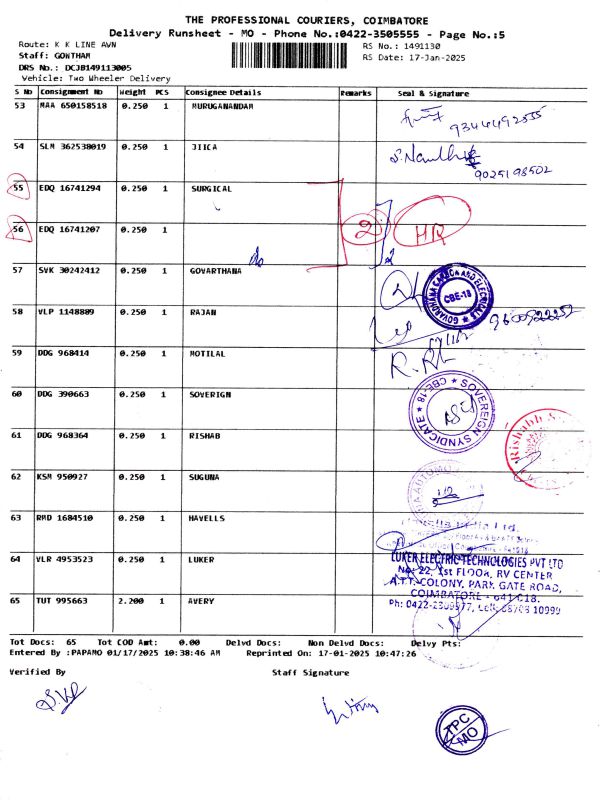 THE PROFESSIONAL COURIERS, COIMBATORE
Delivery Runsheet - MO - Phone No.:0422-3505555 - Page No.:5
Route: K K LINE AVN RS No.: 1491130
Staff: GOWTHAM RS Date: 17-Jan-2025
DRS No.: DCJB149113005
Vehicle: Two Wheeler Delivery
S No Consignment No Weight PCS Consignee Details Remarks Seal & Signature
53 MAA 650158518 0.250 1 MURUGANANDAM
9344492555
54 SLM 362538019 0.250 1 JIICA
9025198502
55 EDQ 16741294 0.250 1 SURGICAL
56 EDQ 16741207 0.250 1 2 HR
57 SVK 30242412 0.250 1 GOVARTHANA
GOVARDHANA CARBON AND ELECTRICALS CBE-18
58 VLP 1148889 0.250 1 RAJAN
9600922252
59 DDG 968414 0.250 1 MOTILAL
60 DDG 390663 0.250 1 SOVERIGN
SOVEREIGN SYNDICATE CBE-18
61 DDG 968364 0.250 1 RISHAB
Rishabh
62 KSM 950927 0.250 1 SUGUNA
63 RMD 1684510 0.250 1 HAVELLS
64 VLR 4953523 0.250 1 LUKER
LUKER ELECTRIC TECHNOLOGIES PVT LTD
No: 22, 1st FLOOR, RV CENTER
A.T.T. COLONY, PARK GATE ROAD,
COIMBATORE - 641 018.
65 TUT 995663 2.200 1 AVERY
Tot Docs: 65 Tot COD Amt: 0.00 Delvd Docs: Non Delvd Docs: Delvy Pts:
Entered By :PAPAMO 01/17/2025 10:38:46 AM Reprinted On: 17-01-2025 10:47:26
Verified By Staff Signature
TPC
MO